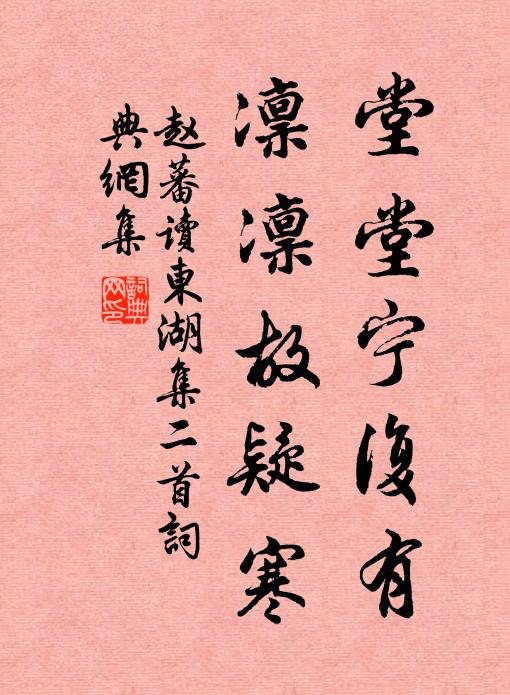 堂堂宁復有
凛凛故疑寒
赵蕃读東湖集二首詞
典網集
詞典網印